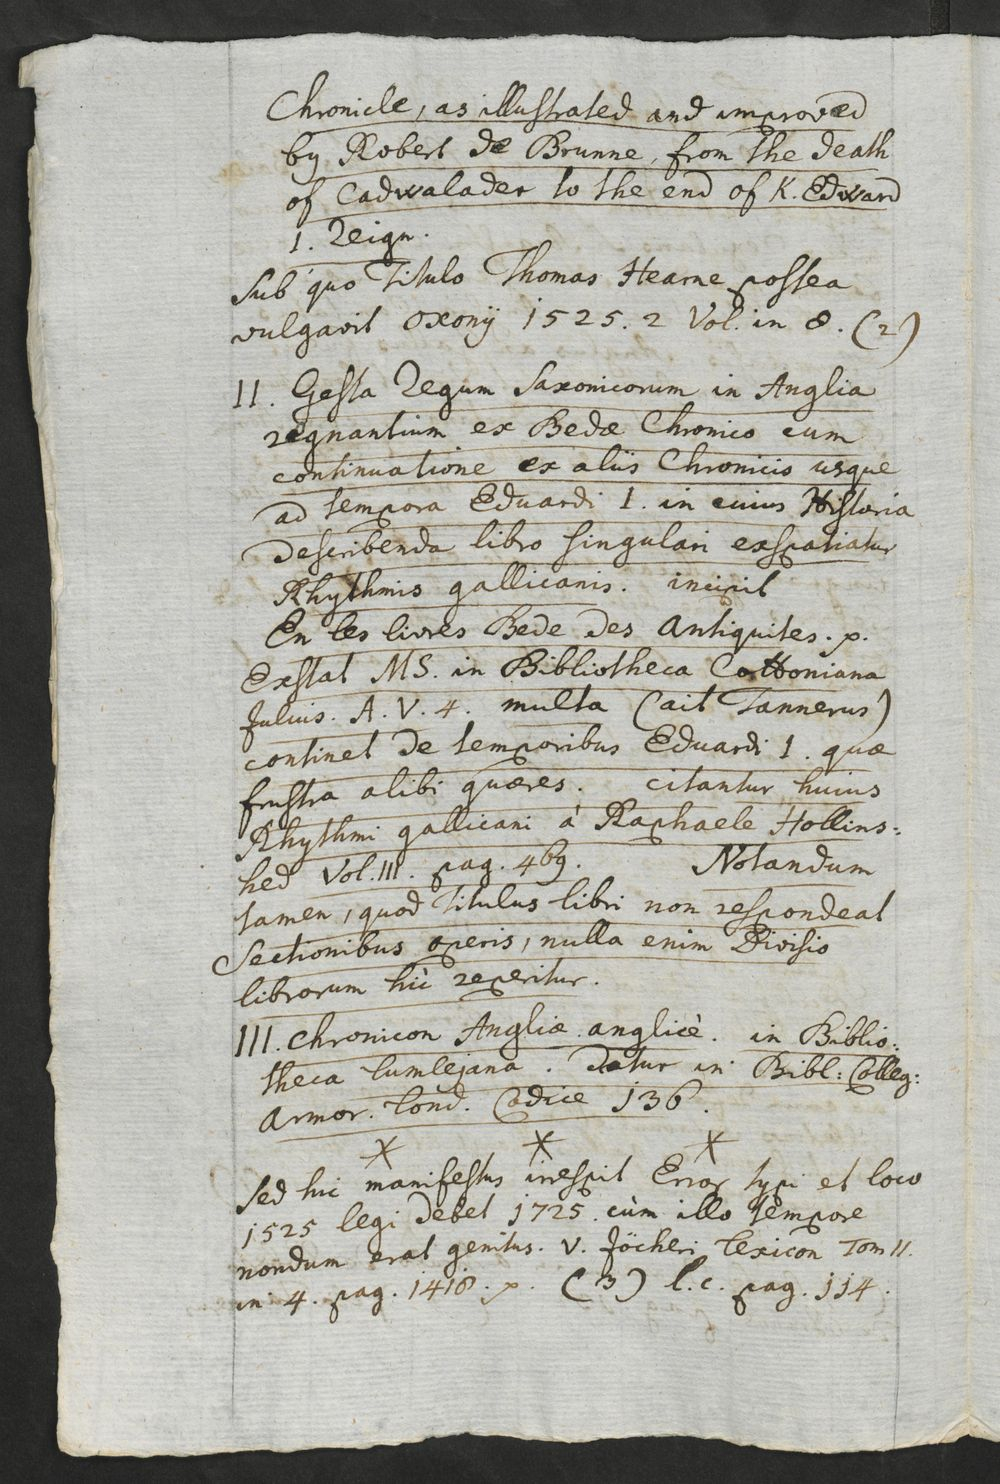 Chronicle, as illustrated and improved
by Robert de Brunne, from the death
of Cadwalader to the end of K. Edward
1. Reign.
Sub quo Titulo Thomas Hearne postea
vulgavit Oxonij 1525. 2 Vol. in 8. (2)
II. Gesta Regum Saxonicorum in Anglia
regnantium ex Bedæ Chronico cum
continuatione ex aliis Chronicis usque
ad tempora Eduardi I. in cuius Historia
describenda libro singulari exspatiatur
Rhythmis gallicanis. incipit
En les livres Bede des Antiquites. p.
Exstat MS. in Bibliotheca Cottoniana
Julius. A. V. 4. multa (ait Tannerus)
continet de temporibus Eduardi I. quæ
frustra alibi quæres. citantur huius
Rhythmi gallicani à Raphaele Hollins=
hed Vol. III. pag. 469. Notandum
tamen, quod Titulus libri non respondeat
Sectionibus operis, nulla enim Divisio
librorum hìc reperitur.
III. Chronicon Angliæ anglicè. in Biblio:
theca Lumlejana. datur in Bibl: Colleg:
Armor. Lond. Codice 136.
* * *
Sed hic manifestus irrepsit Error typi et loco
1525 legi debet 1725. cùm illo tempore
nondum erat genitus. V. Jöcheri Lexicon Tom II.
in 4. pag. 1418. p. (3) l.c. pag. 114.